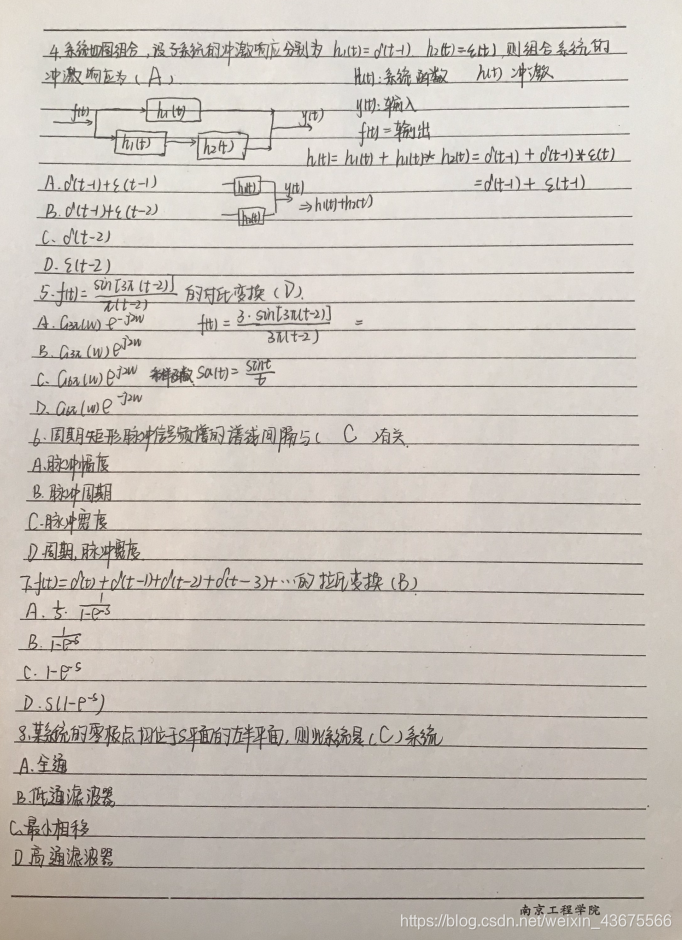 4.系统如图组合,设子系统的冲激响应分别为 h₁(t)=δ(t-1) h₂(t)=ε(t),则组合系统的
冲激响应为(A) H(t):系统函数 h(t) 冲激
f(t) h₁(t) y(t) y(t):输入
h₁(t) h₂(t) f(t)=输出
h(t)=h₁(t)+h₁(t)*h₂(t)=δ(t-1)+δ(t-1)*ε(t)
A.δ(t-1)+ε(t-1) h₁(t) y(t) =δ(t-1)+ε(t-1)
B.δ(t-1)+ε(t-2) h₂(t) ⇒h₁(t)+h₂(t)
C.δ(t-2)
D.ε(t-2)
5.f(t)=sin[3π(t-2)]/π(t-2) 的付氏变换(D).
A.G3π(w)e^-j2w f(t)=3·sin[3π(t-2)]/3π(t-2) =
B.G3π(w)e^j2w
C.G6π(w)e^j2w 采样函数 Sa(t)=sint/t
D.G6π(w)e^-j2w
6.周期矩形脉冲信号频谱的谱线间隔与( C )有关.
A.脉冲幅度
B.脉冲周期
C.脉冲宽度
D.周期,脉冲宽度
7.f(t)=δ(t)+δ(t-1)+δ(t-2)+δ(t-3)+…的拉氏变换(B)
A. 1/s·1/1-e^-s
B. 1/1-e^-s
C. 1-e^-s
D. s(1-e^-s)
8.某系统的零极点均位于S平面的左半平面,则此系统是(C)系统
A.全通
B.低通滤波器
C.最小相移
D.高通滤波器
南京工程学院
https://blog.csdn.net/weixin_43675566